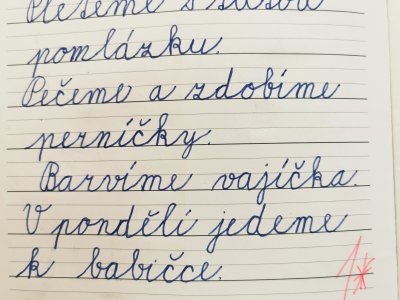 Pleteme s
pomlázku.
Pečeme a zdobíme
perníčky.
Barvíme vajíčka.
V pondělí jedeme
k babičce.
1*